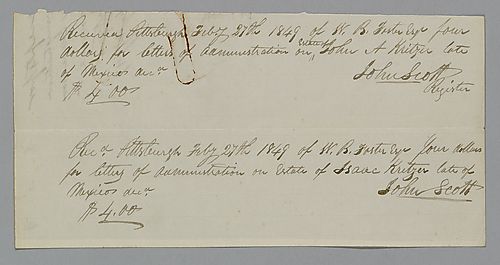 Received Pittsburgh Feby 27th 1849 of W. B. Foster Esqr four
dollars for letters of administration on Estate John A Kritzer late
of Mexico decd.
$4.00
John Scott
Register
Recd. Pittsburgh Feby 27th 1849 of W. B. Foster Esqr Four dollars
for letters of administration on Estate of Isaac Kritzer late of
Mexico decd.
$4.00
John Scott